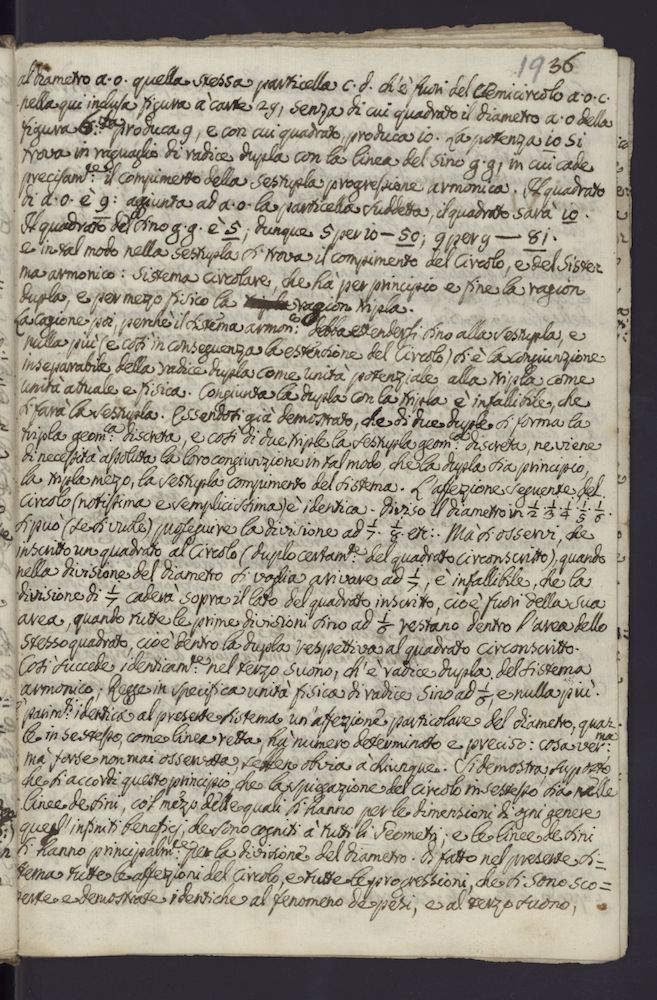 19 36
al diametro a·o· quella stessa particella c·d· ch'è fuori del semicircolo a·o·c·
nella qui inclusa figura a carte 29, senza di cui quadrato il diametro a·o della
figura 6:ta produca 9, e con cui quadrato, produca 10. La potenza 10 si
trova in raguaglio di radice dupla con la linea del sino g·g, in cui cade
precisam:te il compimento della sestupla progressione armonica. Il quadrato
di a·o· è 9: agiunta ad a·o· la particella suddetta, il quadrato sarà 10.
Il quadrato del sino g·g· è 5; dunque 5 per 10 — 50; 9 per 9 — 81.
e in tal modo nella sestupla si trova il compimento del Circolo, e del Siste=
ma armonico: Sistema circolare, che hà per principio e fine la ragion
dupla, e per mezo fisico la ragion tripla.
La cagione poi, perchè il sistema armon:co debba estendersi sino alla sestupla, e
nulla più (e così in conseguenza la estensione del Circolo) si è la congiunzione
inseparabile della radice dupla come unità potenziale alla tripla come
unità attuale e fisica. Congiunta la dupla con la tripla è infallibile, che
si farà la sestupla. Essendosi già demostrato, che di due duple si forma la
tripla geom:ca discreta, e così di due triple la sestupla geom:ca discreta, ne viene
di necessità assoluta la loro congiunzione in tal modo, che la dupla sia principio,
la tripla mezo, la sestupla compimento del sistema. L'affezione seguente del
Circolo (notissima e semplicissima) è identica. Diviso il diametro in 1/2 1/3 1/4 1/5 1/6.
si può (se si vuole) proseguire la divisione ad 1/7 1/8 etc:. Ma si osservi, che
inscritto un quadrato al Circolo (duplo certam:te del quadrato circonscritto), quando
nella divisione del diametro si voglia arivare ad 1/7, è infallibile, che la
divisione di 1/7 caderà sopra il lato del quadrato inscritto, cioè fuori della sua
area, quando tutte le prime divisioni sino ad 1/6 restano dentro l'area dello
stesso quadrato, cioè dentro la dupla respettiva al quadrato circonscritto.
Così succede identicam:te nel terzo suono, ch'è radice dupla, del sistema
armonico; Regge in specifica unità fisica di radice sino ad 1/6, e nulla più.
È parim:te identica al presente sistema un'affezione particolare del diametro, qua=
le in se stesso, come linea retta, hà numero determinato e preciso: cosa
mà forse non mai osservata obvia a chiunque. Si demostra. Suposto
che si accordi questo principio, che la spiegazione del circolo in se stesso sia nelle
linee de sini, col mezo delle quali si hanno per le dimensioni di ogni genere
quegl'infiniti beneficj, che sono cogniti a tutti li Geometri; e le linee de sini
si hanno principalm:te per la divisione del diametro. Di fatto nel presente si=
stema tutte le affezioni del Circolo, e tutte le progressioni, che si sono sco=
perte e demostrate identiche al fenomeno de pesi, e al terzo suono,